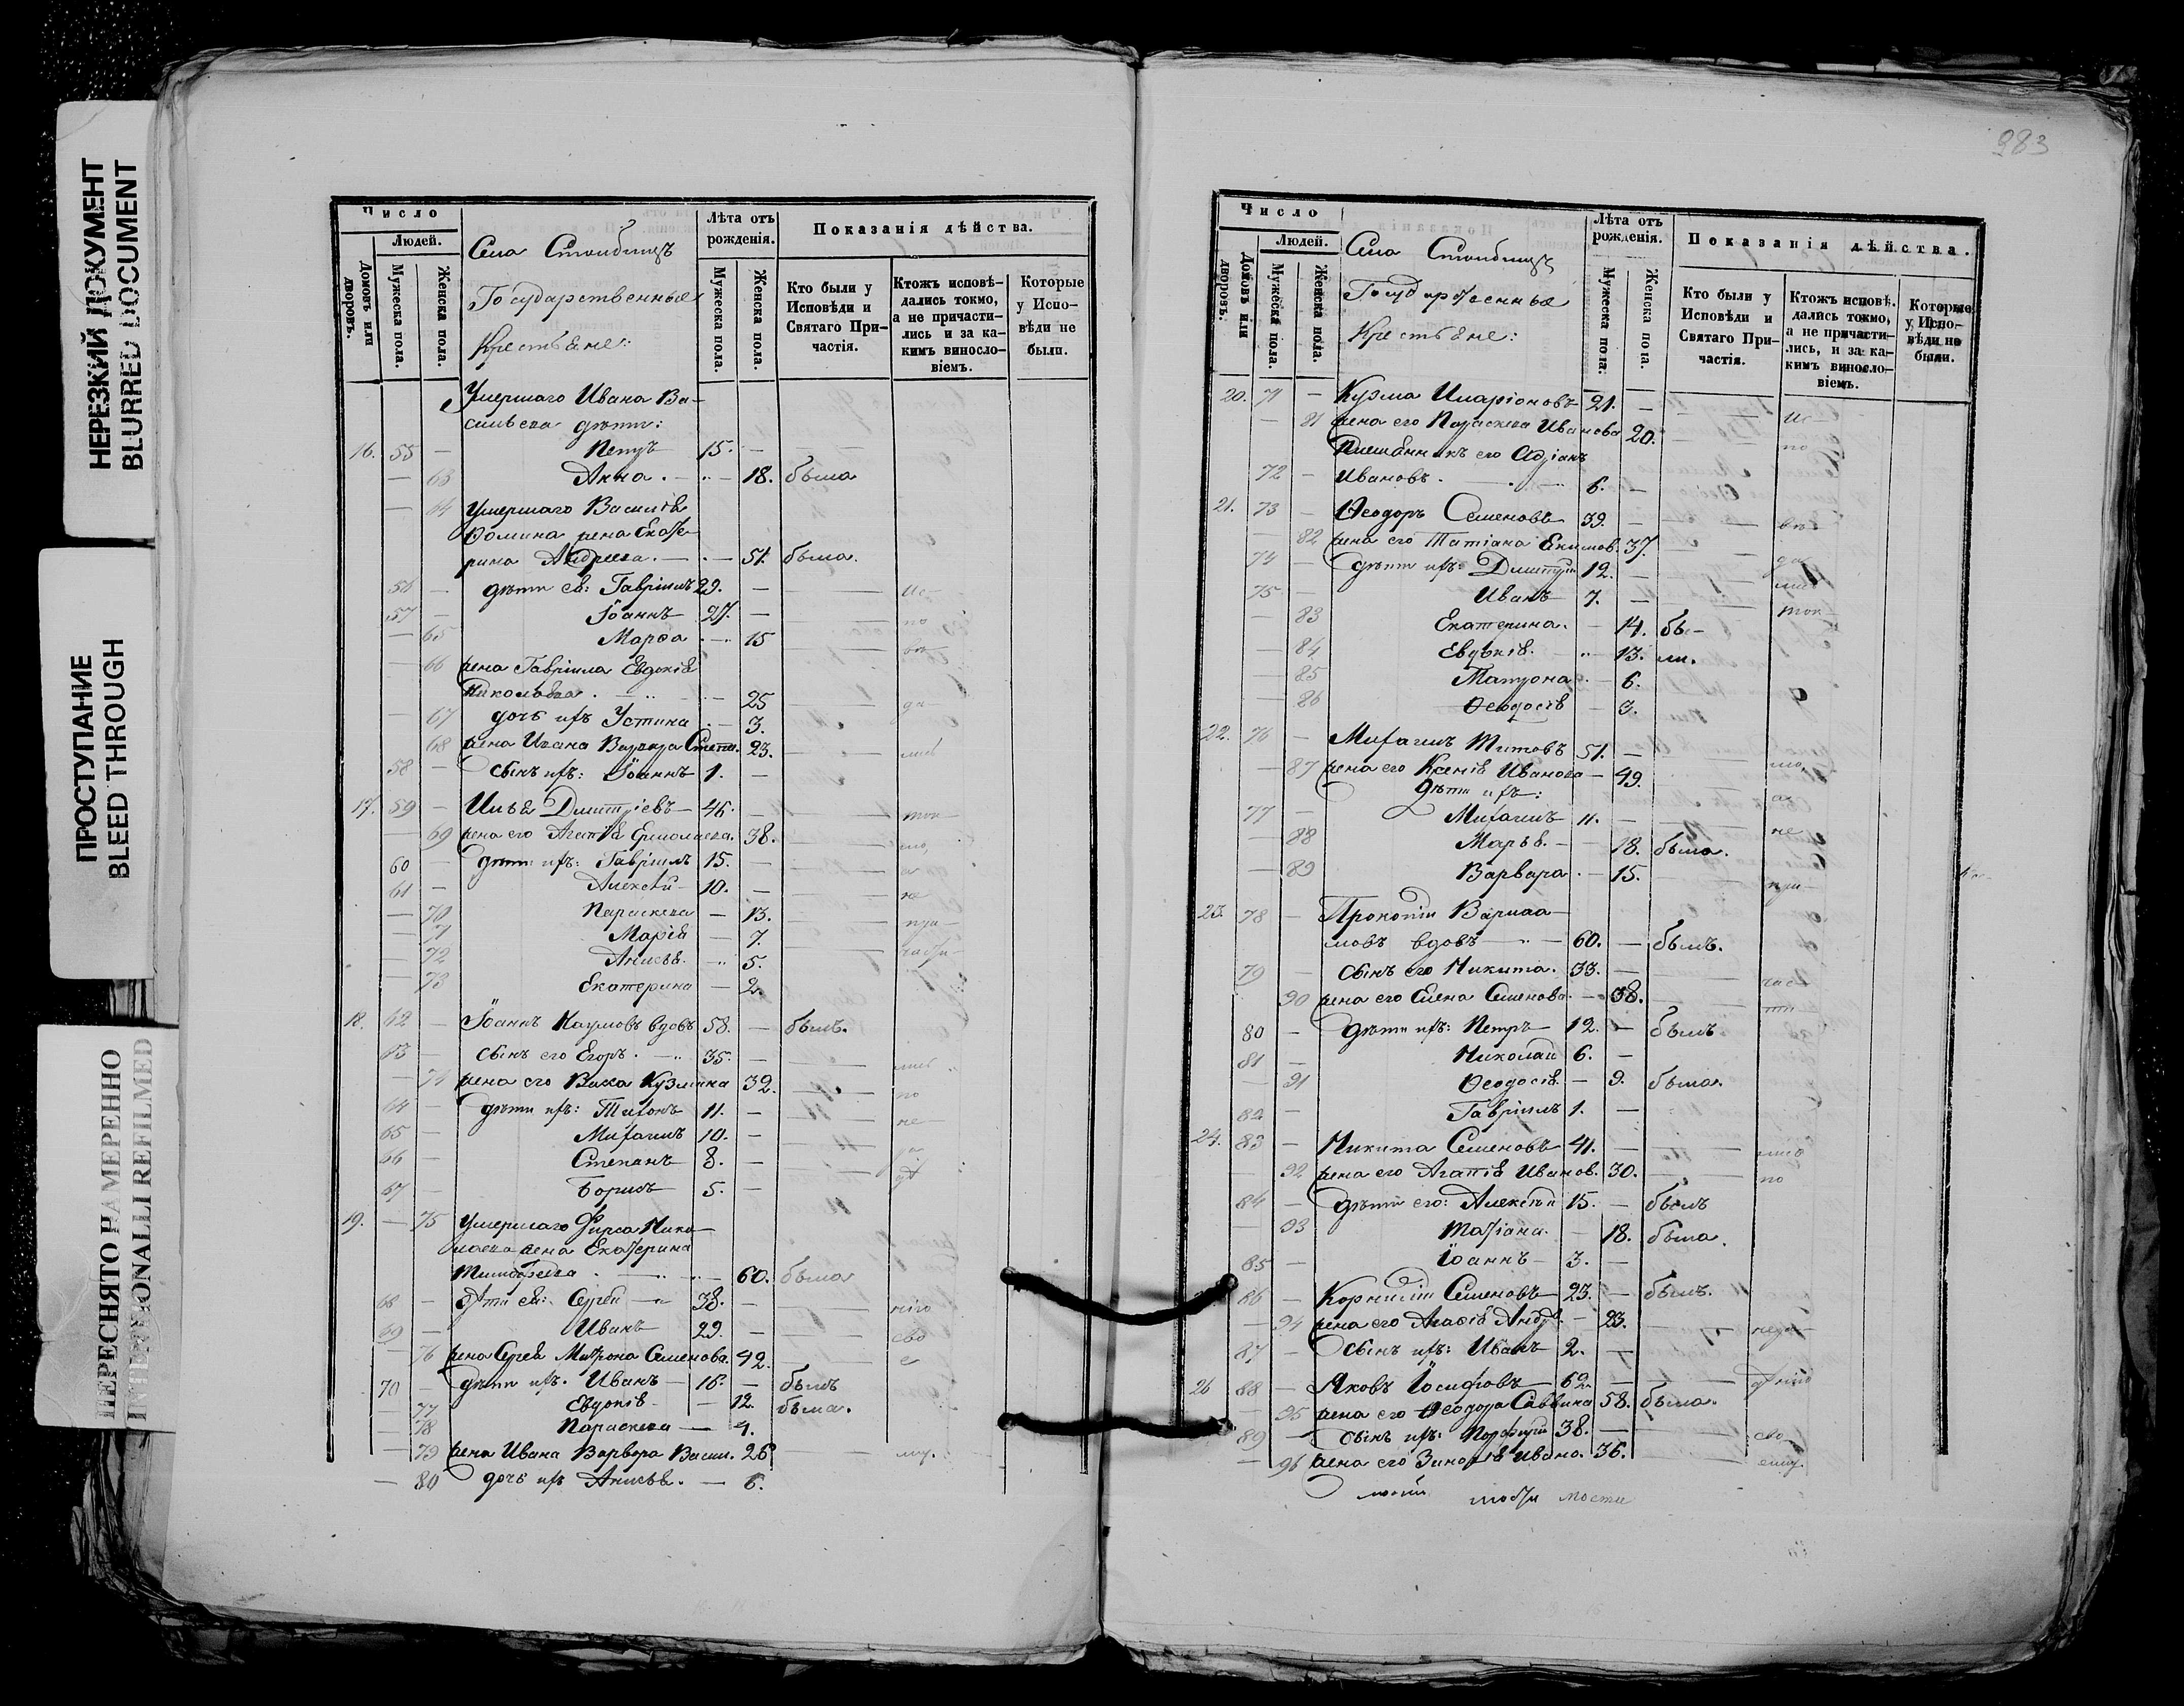 НЕРЕЗКИЙ ДОКУМЕНТ
BLURRED DOCUMENT
ПРОСТУПАНИЕ
BLEED THROUGH
ПЕРЕСНЯТО НАМЕРЕННО
INTENTIONALLI REFILMED
Число
Людей.
Домовъ или дворовъ.
Мужеска пола.
Женска пола.
Села
Государственные
Крестьяне:
Лѣта отъ рожденія.
Мужеска пола.
Женска пола.
Показанія дѣйства.
Кто были у Исповѣди и Святаго Причастія.
Ктожъ исповѣдались токмо, а не причастились и за какимъ винословіемъ.
Которые у Исповѣди не были.
Умершаго Ивана Ва-
сильева дѣти:
16. 55 — Петръ 15. —
— 63 Анна — 18. была
— 64 Умершаго Василія
Фомина жена Екате-
рина Андреева — 51. была.
56 — дѣти ея: Гавріилъ 29. — ис-
57 — Іоаннъ 27. — по
— 65 Марѳа — 15 вѣ-
— 66 жена Гавріила Евдокія
Николаева — 25 да-
— 67 дочь ихъ Устина — 3.
68 жена Ивана Варвара Степа. 23. лись
58 — сынъ ихъ: Іоаннъ 1. —
17. 59 — Илья Димитріевъ 46. — ток-
— 69 жена его Агапія Ермолаева. 38. мо,
60 — дѣти ихъ: Гавріилъ 15. — а
61 — Алексѣй 10. — не
— 70 Параскева — 13. при-
— 71 Марія — 7. части-
— 72 Анисья — 5.
— 73 Екатерина — 2.
18. 62 — Іоаннъ Наумовъ вдовъ 58. — былъ.
63 — сынъ его Егоръ. 35. — лись
— 74 жена его Васса Кузмина 32. по
64 — дѣти ихъ: Тихонъ 11. — не-
65 — Михаилъ 10. —
66 — Степанъ 8. —
67 — Борисъ 5. —
19. — 75 Умершаго Фирса Нико-
лаева жена Екатерина
Тимофеева — 60. была
68 — дѣти ея: Сергей 38. — нію
69 — Иванъ 29. — сво
— 76 жена Сергея Матрона Семенова. 42. е
70 — дѣти ихъ. Иванъ 16. — былъ
— 77 Евдокія — 12. была.
— 78 Параскева — 4.
— 79 жена Ивана Варвара Васил. 26 му.
— 80 дочь ихъ Анисья. — 6.
983
Число
Людей.
Домовъ или дворовъ.
Мужеска пола.
Женска пола.
Села
Государственные
Крестьяне:
Лѣта отъ рожденія.
Мужеска пола.
Женска пола.
Показанія дѣйства.
Кто были у Исповѣди и Святаго Причастія.
Ктожъ исповѣдались токмо, а не причастились, и за какимъ винословіемъ.
Которые у Исповѣди не были.
20. 71 — Кузма Иларіоновъ 21. — Ис-
— 81 жена его Параскева Иванова 20. по
Племянникъ его Адріанъ
72 — Ивановъ. 6. —
21. 73 — Ѳеодоръ Семеновъ 39. — вѣ
— 82 жена его Татіана Екимов. 37. да
74 — дѣти ихъ: Димитрій 12. — лись
75 — Иванъ 7. — ток-
— 83 Екатерина. — 14. бы-
— 84 Евдокія. — 13. ли.
— 85 Матрона — 6.
— 86 Ѳеодосія — 3.
22. 76 — Михаилъ Титовъ 51. —
— 87 жена его Ксенія Иванова — 49. мо,
Дѣти ихъ: а
77 — Михаилъ 11. —
— 88 Марья. — 18. была. не
— 89 Варвара. — 15. при-
23. 78 — Прокопій Варлаа-
мовъ вдовъ 60. — былъ.
79 — сынъ его Никита. 33. — час-
90 жена его Елена Семенова. — 38. ти-
80 — дѣти ихъ: Петръ 12. — былъ
81 — Николай 6. —
— 91 Ѳеодосія. — 9. была.
82 — Гавріилъ 1. —
24. 83 — Никита Семеновъ 41. — лись
— 92 жена его Агапія Иванов. 30. по
84 — дѣти его: Алексѣй 15. — былъ
— 93 Татіана. — 18. была.
85 — Іоаннъ 3. —
86 — Корнилій Семеновъ 23. — былъ.
— 94 жена его Агафія — 23.
87 — сынъ ихъ: Иванъ 2. —
26 88 — Яковъ Іосифовъ 62 —
— 95 жена его Ѳеодора Саввина 58. была.
89 — сынъ ихъ: Порфирій 38. — сво
— 96 жена его Зиновія Ивано. 36. ему.